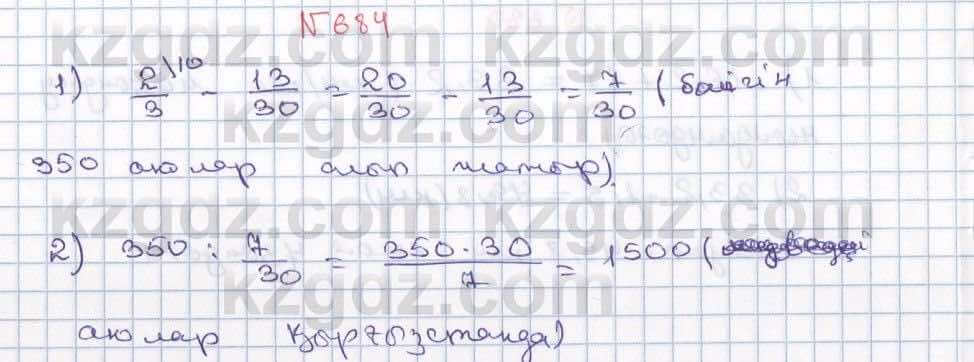 №684
1) 2/3 \10 - 13/30 = 20/30 - 13/30 = 7/30 (бөлігін
350 аюлар алып жатыр).
2) 350 : 7/30 = 350·30/7 = 1500 (
аюлар Қырғызстанда)
kzgdz.com kzgdz.com
kzgdz.com
kzgdz.com kzgdz.com
kzgdz.com